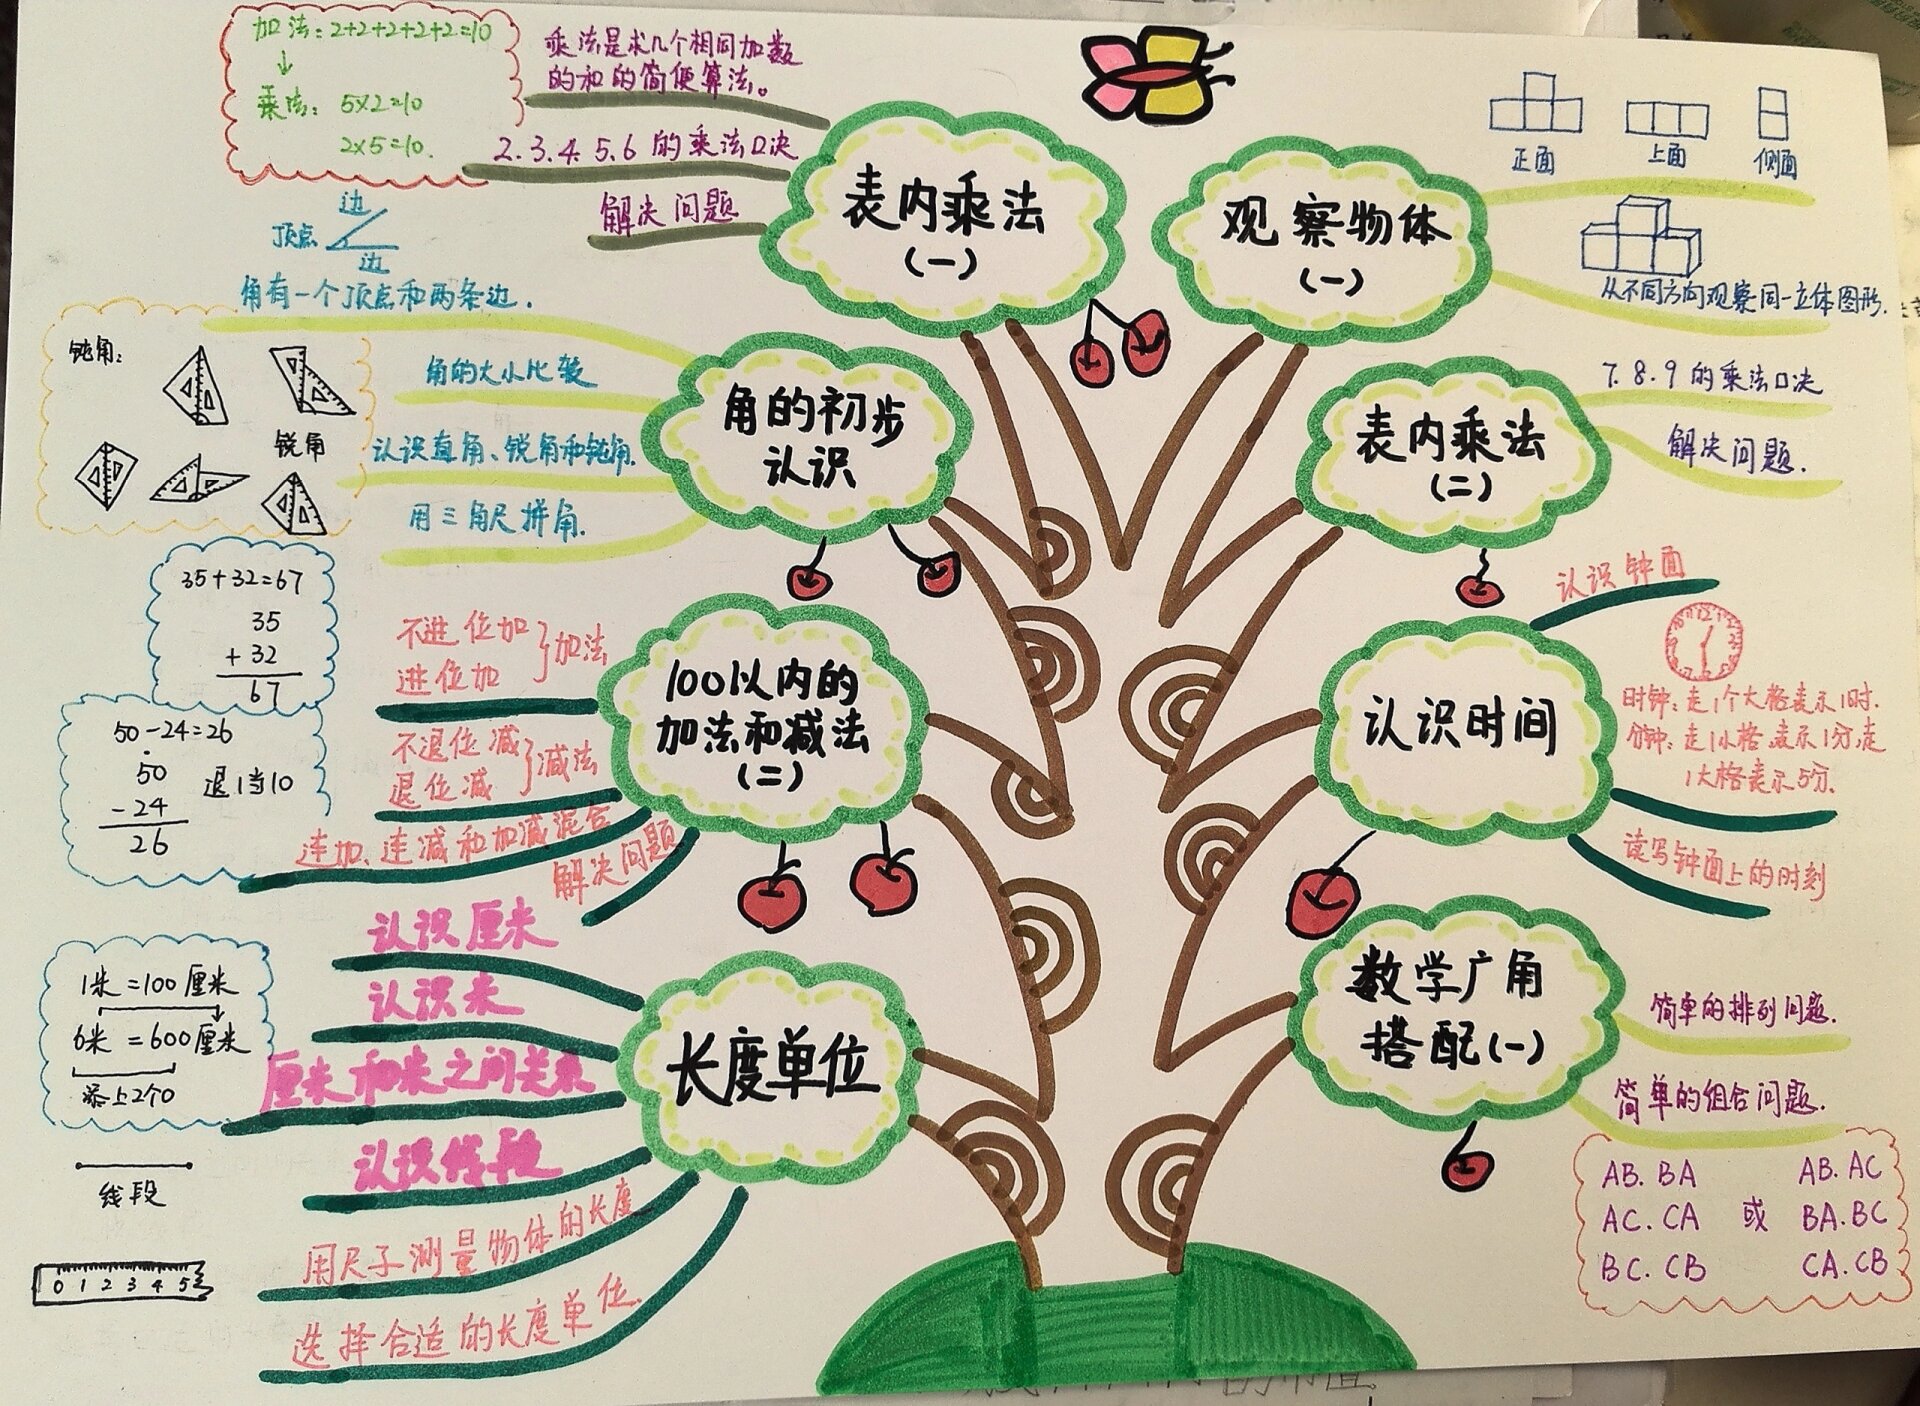 加法:2+2+2+2+2=10
乘法: 5×2=10
2×5=10.
乘法是求几个相同加数
的和的简便算法。
2.3.4.5.6的乘法口决
解决问题
表内乘法
(一)
边
顶点
边
角有一个顶点和两条边.
钝角:
锐角
角的大小比较
认识直角、锐角和钝角.
用三角尺拼角.
角的初步
认识
35+32=67
35
+32
67
50-24=26
50
退1当10
-24
26
不进位加
进位加
加法
不退位减
退位减
减法
连加、连减和加减混合
解决问题
100以内的
加法和减法
(二)
1米=100厘米
6米=600厘米
添上2个0
线段
0 1 2 3 4 5
认识厘米
认识米
厘米和米之间关系
认识线段
用尺子测量物体的长度
选择合适的长度单位.
长度单位
观察物体
(一)
正面
上面
侧面
从不同方向观察同一立体图形.
表内乘法
(二)
7.8.9的乘法口决
解决问题.
认识时间
认识钟面
时钟:走1个大格表示1时.
分钟:走1小格表示1分,走
1大格表示5分.
读写钟面上的时刻
数学广角
搭配(一)
简单的排列问题.
简单的组合问题.
AB.BA AB.AC
AC.CA 或 BA.BC
BC.CB CA.CB